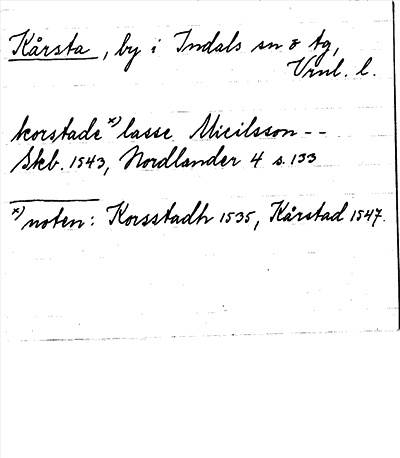 Kårsta, by i Indals sn o tg,
Vrnl. l.
korstade *) lasse Micilsson - -
Skb. 1543, Nordlander 4 s. 133
*) noten: Korsstadh 1535, Kårstad 1547.